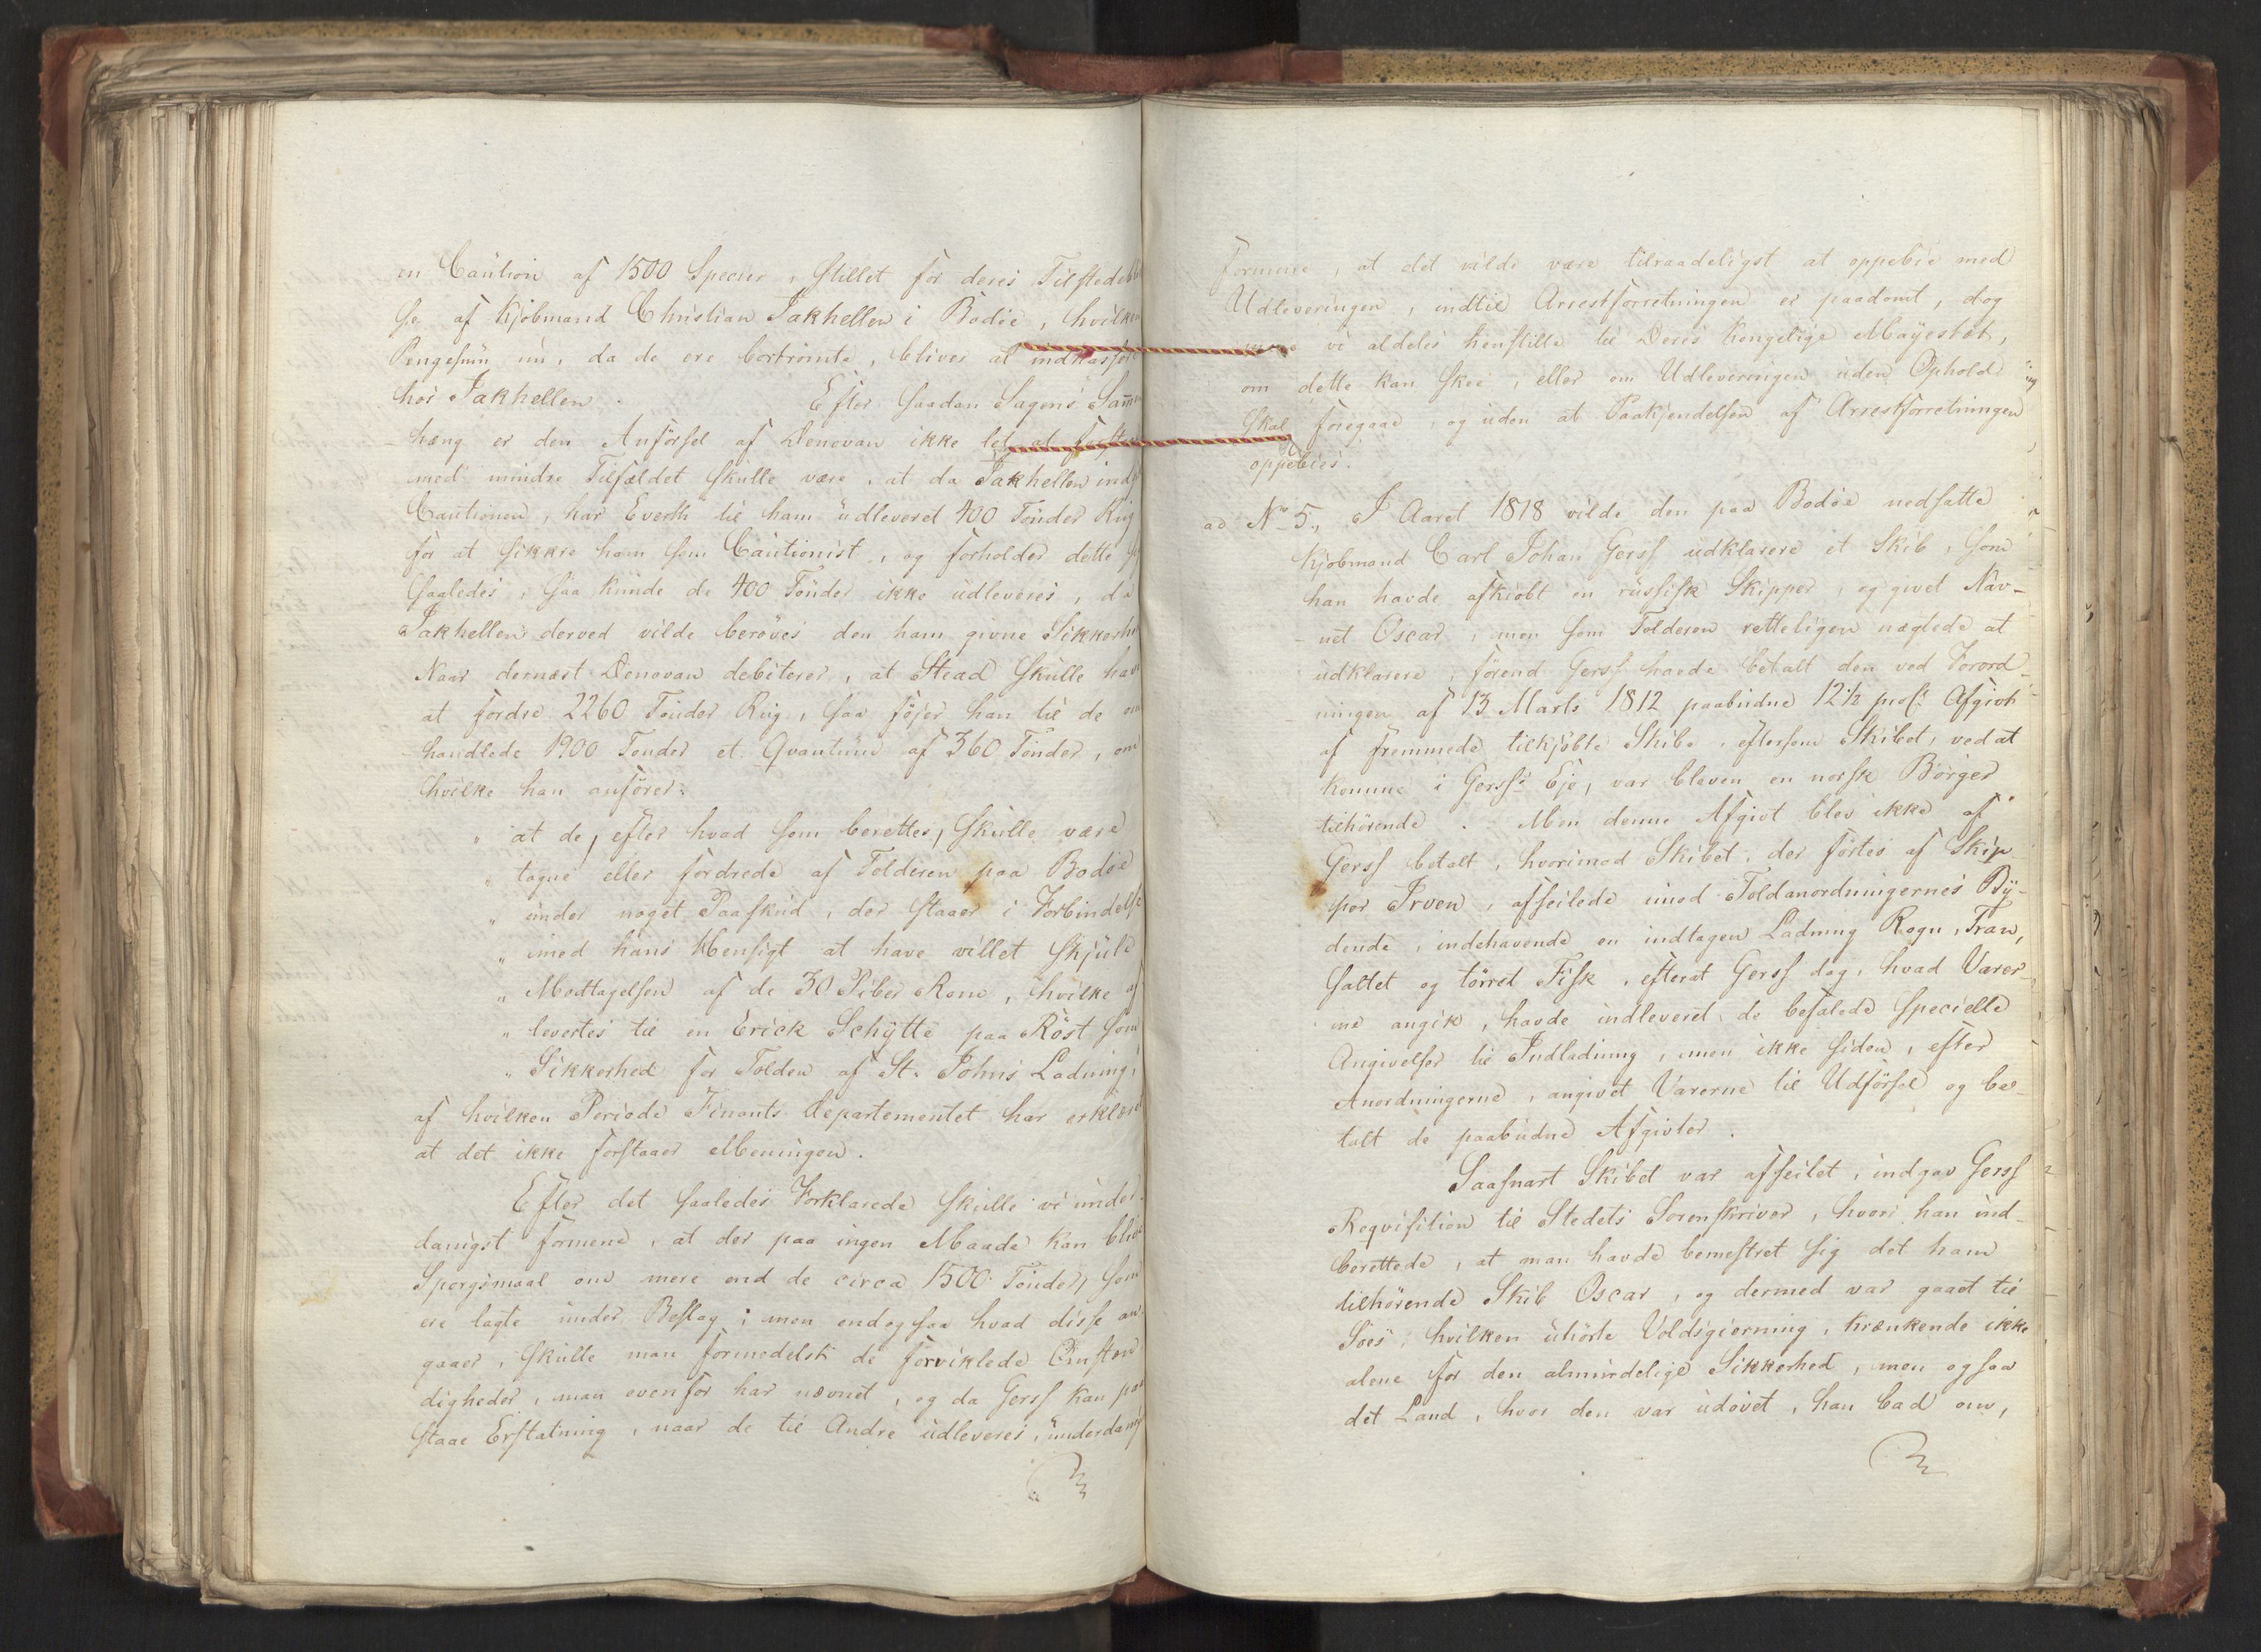 en Caution af 1500 Specier, stillet for deres Tilstedebli
se af Kjøbmand Christian Jakhellen i Bodøe, hvilken
Pengesum nu, da de ere bortrømte, bliver at indkasser
hos Jakhellen. Efter saadan Sagens Samen
hæng er den Anførsel af Denovan ikke let at forstaa
med mindre Tilfældet skulle være, at da Jakhellen indg
Cautionen, har Everth til ham udleveret 400 Tønder Rug
for at sikkre ham som Cautionist, og forholder dette s
saaledes, saa kunde de 400 Tønder ikke udleveres, da
Jakhellen derved vilde berøves den ham givne Sikkerhe
Naar dernæst Denovan debiterer, at Stead skulle hav
at fordre 2260 Tønder Rug, saa føjer han til de om
handlede 1900 Tønder et Qvantum af 360 Tønder, om
hvilke han anfører:
" at de, efter hvad som berettes, skulle være
" tagne eller fordrede af Tolderen paa Bodøe
" under noget Paaskud, der staaer i Forbindelse
" med hans Hensigt at have villet skjule
" Modtagelsen af de 30 Piber Rom, hvilke af
" levertes til en Erick Schytte paa Röst som
" Sikkerhed for Tolden af St. Johns Ladning,
af hvilken Periode Finants Departementet har erklære
at det ikke forstaaer Meningen.
Efter det saaledes Forklarede skulle vi under
danigst formene, at der paa ingen Maade kan blive
Spørgsmaal om mere end de circa 1500 Tønder, som
ere lagte under Beslag; men endogsaa hvad disse an
gaaer, skulle man formedelst de forviklede Omstæn
digheder, man ovenfor har nævnet, og da Gerss kan paa
staae Erstatning, naar de til Andre udleveres, underdanig
formene, at det vilde være tilraadeligst at oppebie med
Udleveringen, indtil Arrestforretningen er paadømt, dog
vi aldeles henstille til Deres Kongelige Mayestæt,
om dette kan skee, eller om Udleveringen uden Ophold
skal foregaae, og uden at Paakjendelsen af Arrestforretningen
oppebies.
ad No 5., I Aaret 1818 vilde den paa Bodøe nedsatte
Kjøbmand Carl Johan Gerss udklarere et Skib, som
han havde afkiøbt en russisk Skipper, og givet Nav-
net Oscar, men som Tolderen retteligen nægtede at
udklarere, førend Gerss havde betalt den ved Forord-
ningen af 13 Marts 1812 paabudne 12½ proCt Afgivt
af fremmede tilkjøbte Skibe, eftersom Skibet, ved at
komme i Gerss's Eje, var bleven en norsk Borger
tilhørende. Men denne Afgivt blev ikke af
Gerss betalt, hvorimod Skibet, der førtes af Skip
per Irven, afseilede imod Toldanordningernes By-
dende, indehavende en indtagen Ladning Rogn, Tran,
saltet og tørret Fisk, efterat Gerss dog, hvad Varer-
ne angik, havde indleveret de befalede specielle
Angivelser til Indladning, men ikke siden, efter
Anordningerne, angivet Varerne til Udførsel og be-
talt de paabudne Afgivter.
Saasnart Skibet var afseilet, indgav Gerss
Reqvisition til Stedets Sorenskriver, hvori han ind-
berettede, at man havde bemestret sig det ham
tilhörende Skib Oscar, og dermed var gaaet til
Söes, hvilken uhörte Voldsgierning, krænkende ikke
alene for den almindelige Sikkerhed, men ogsaa
det Land, hvor den var udövet, han bad om,